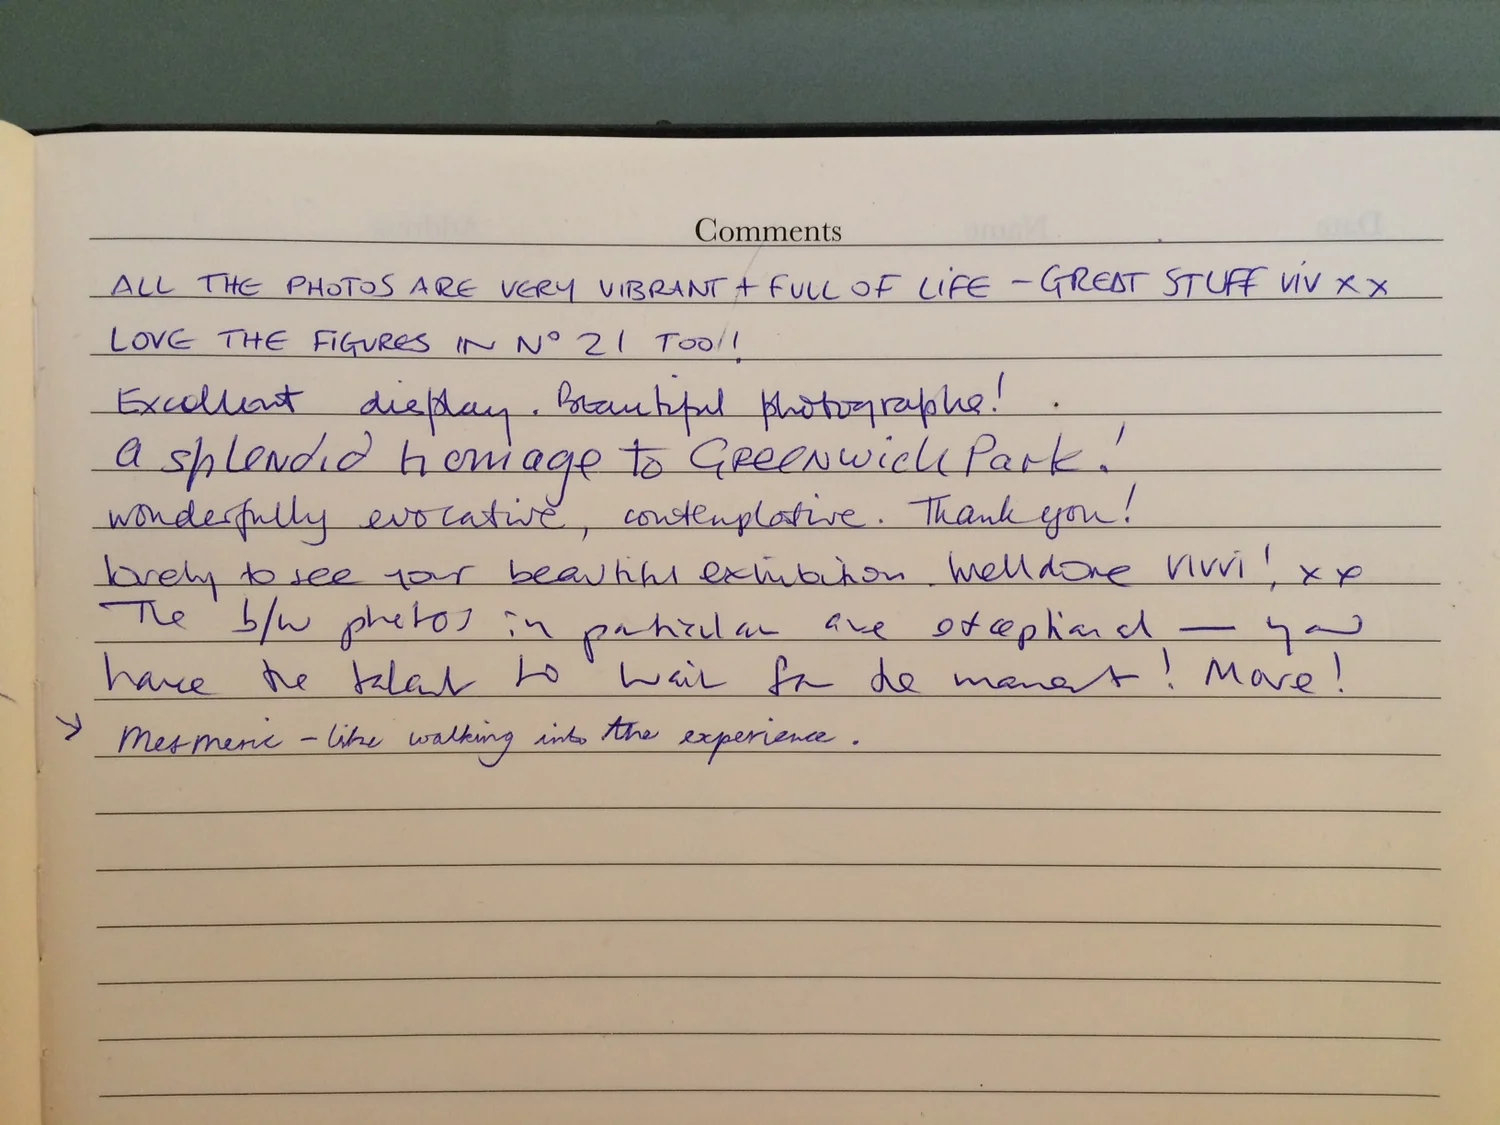 Comments
ALL THE PHOTOS ARE VERY VIBRANT + FULL OF LIFE - GREAT STUFF VIV x x
LOVE THE FIGURES IN Nº 21 TOO!!
Excellent display. Beautiful photographs!
A splendid homage to GREENWICH Park!
wonderfully evocative, contemplative. Thank you!
lovely to see your beautiful exhibition. Well done Vivvi! x x
The b/w photos in particular are exceptional — you
have the talent to wait for the moment! More!
Mesmeric - like walking into the experience.